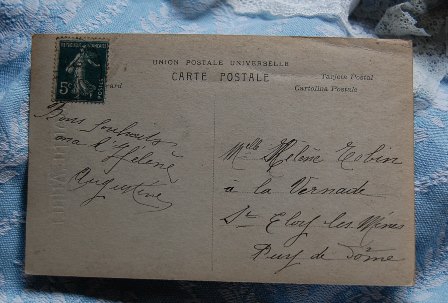 UNION POSTALE UNIVERSELLE
CARTE POSTALE
Postal
Cartolina Postale
5c
Bons Souhaits
ma p'Hélène
Augustine
Mlle Hélène Robin
à la Vernade
St Eloy les Mines
Puy de Dôme